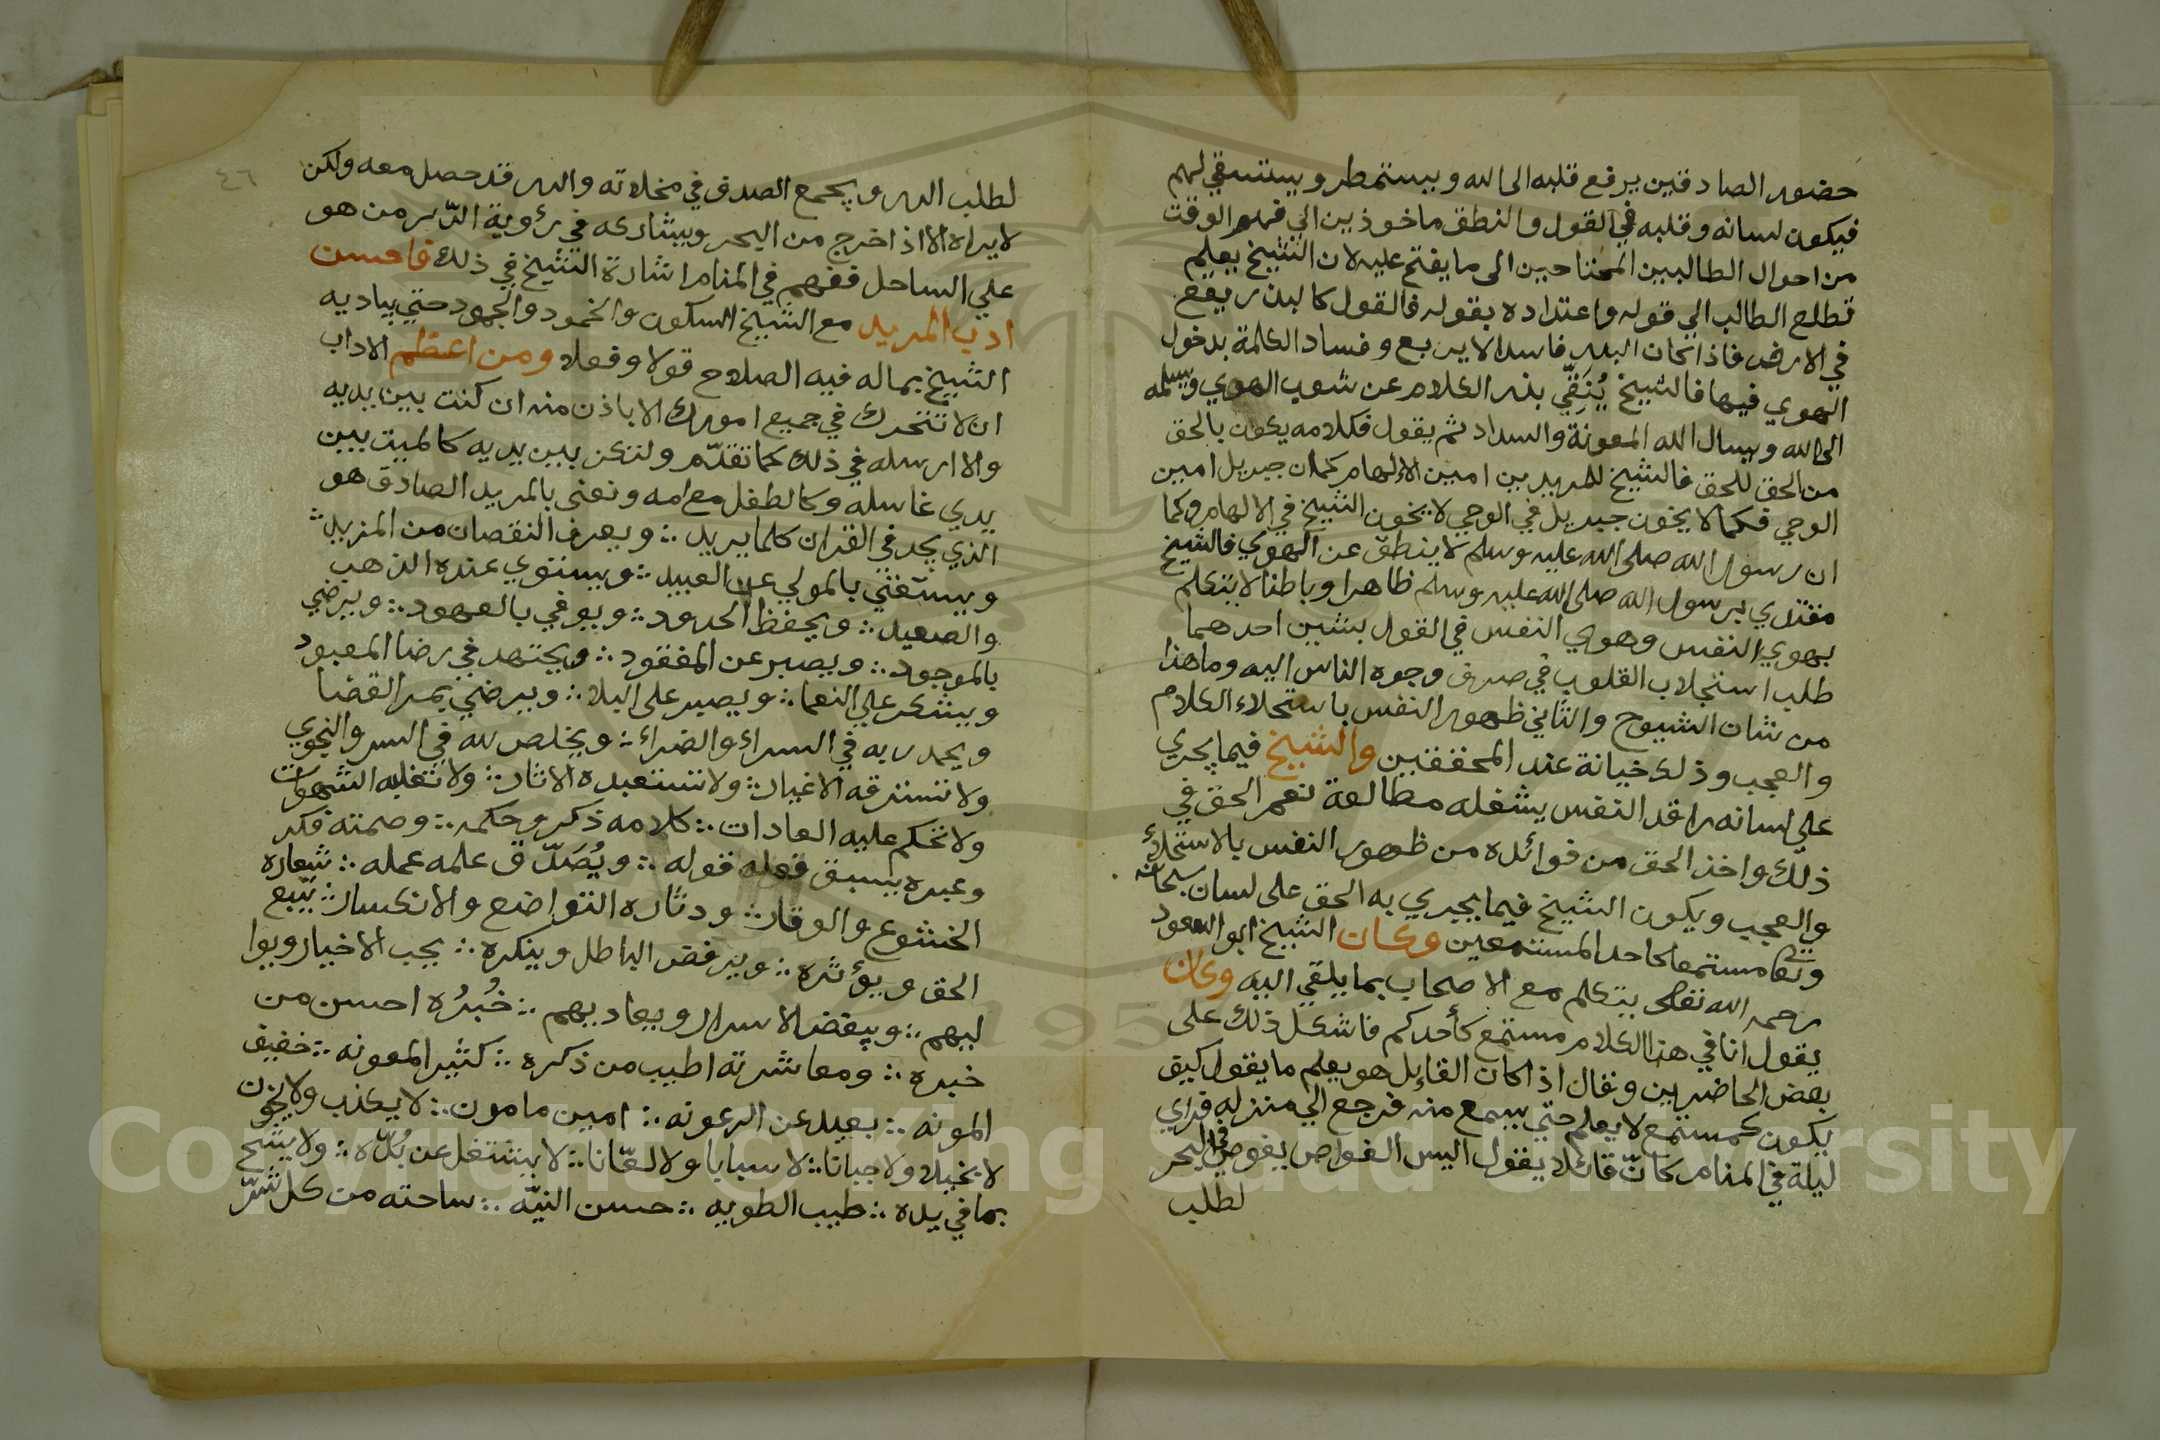 حضور الصادقين يرفع قلبه الى الله ويستمطر ويستسقي لهم
فيكون لسانه وقلبه في القول والنطق ماخوذين الي فهم الوقت
من احوال الطالبين المحتاجين الى ما يفتح عليه لان الشيخ يعلم
تطلع الطالب الي قوله واعتداده بقوله فالقول كالبذر يقع
في الارض فاذا كان البذر فاسدا لا يربع وفساد الكلمة بدخول
الهوي فيها فالشيخ يُنَقِّي بذر الكلام عن شوب الهوي ويسلمه
الى الله ويسال الله المعونة والسداد ثم يقول فكلامه يكون بالحق
من الحق للحق فالشيخ للمريدين امين الالهام كما ان جبريل امين
الوحي فكما لا يخون جبريل في الوحي لا يخون الشيخ في الالهام وكما
ان رسول الله صلى الله عليه وسلم لا ينطق عن الهوي فالشيخ
مقتدي برسول الله صلى الله عليه وسلم ظاهرا وباطنا لا يتكلم
بهوي النفس وهوي النفس في القول بشيين احدهما
طلب استجلاب القلوب في صرف وجوه الناس اليه وما هذا
من شان الشيوخ والثاني ظهور النفس باستحلاء الكلام
والعجب وذلك خيانة عند المحققين والشيخ فيما يجري
علي لسانه راقد النفس يشغله مطالعة نعم الحق في
ذلك واخذ الحق من فوائده من ظهور النفس بالاستحلاء
والعجب ويكون الشيخ فيما يجري به الحق على لسان سبحانه
وتعا مستمعا كاحد المستمعين وكان الشيخ ابو السعود
رحمه الله تعالى يتكلم مع الاصحاب بما يلقي اليه وكان
يقول انا في هذا الكلام مستمع كأحدكم فاشكل ذلك على
بعض الحاضرين وقال اذا كان القايل هو يعلم ما يقول كيف
يكون كمستمع لا يعلم حتي يسمع منه فرجع الي منزله فراي
ليلة في المنام كانّ قائلا يقول اليس الغواص يغوص في البحر
لطلب
٤٦
لطلب الدر ويجمع الصدف في مخلاته والدر قد حصل معه ولكن
لا يراه الا اذا خرج من البحر ويشاركه في رؤية الدّر من هو
علي الساحل ففهم في المنام اشارة الشيخ في ذلك فاحسن
ادب المريد مع الشيخ السكون والخمود والجمود حتي يباديه
الشيخ بما له فيه الصلاح قولا وفعلا ومن اعظم الاداب
ان لا تتحرك في جميع امورك الا باذن منه ان كنت بين يديه
والا ارسله في ذلك كما تقدّم ولتكن بين يديه كالميت بين
يدي غاسله وكالطفل مع امه ونعنى بالمريد الصادق هو
الذي يجد في القران كلما يريد ويعرف النقصان من المزيد
ويستغني بالمولي عن العبيد ويستوي عنده الذهب
والصعيد ويحفظ الحدود ويوفي بالعهود ويرضي
بالموجود ويصبر عن المفقود ويجتهد في رضا المعبود
ويشكر علي النعما ويصبر على البلا ويرضي بمر القضا
ويحمد ربه في السراء والضراء ويخلص لله في السر والنجوي
ولا تسترقه الاغيار ولا تستعبده الاثار ولا تغلبه الشهوات
ولا تحكم عليه العادات كلامه ذكر وحكمه وصمته فكر
وعبره يسبق فعله قوله ويُصَدّق علمه عمله شعاره
الخشوع والوقار ودثاره التواضع والانكسار يتبع
الحق ويؤثره ويرفض الباطل وينكره يحب الاخيار ويوا
ليهم ويبغض الاشرار ويعاديهم خُبْرُه احسن من
خبره ومعاشرته اطيب من ذكره كثير المعونه خفيف
المونه بعيد عن الرعونه امين مامون لا يكذب ولا يخون
لا بخيلا ولا جبانا لا سبابا ولا لعّانا لا يشتغل عن بُدّه ولا يشح
بما في يده طيب الطويه حسن النيّه ساحته من كل شرّ
Copyright © King Saud University
195